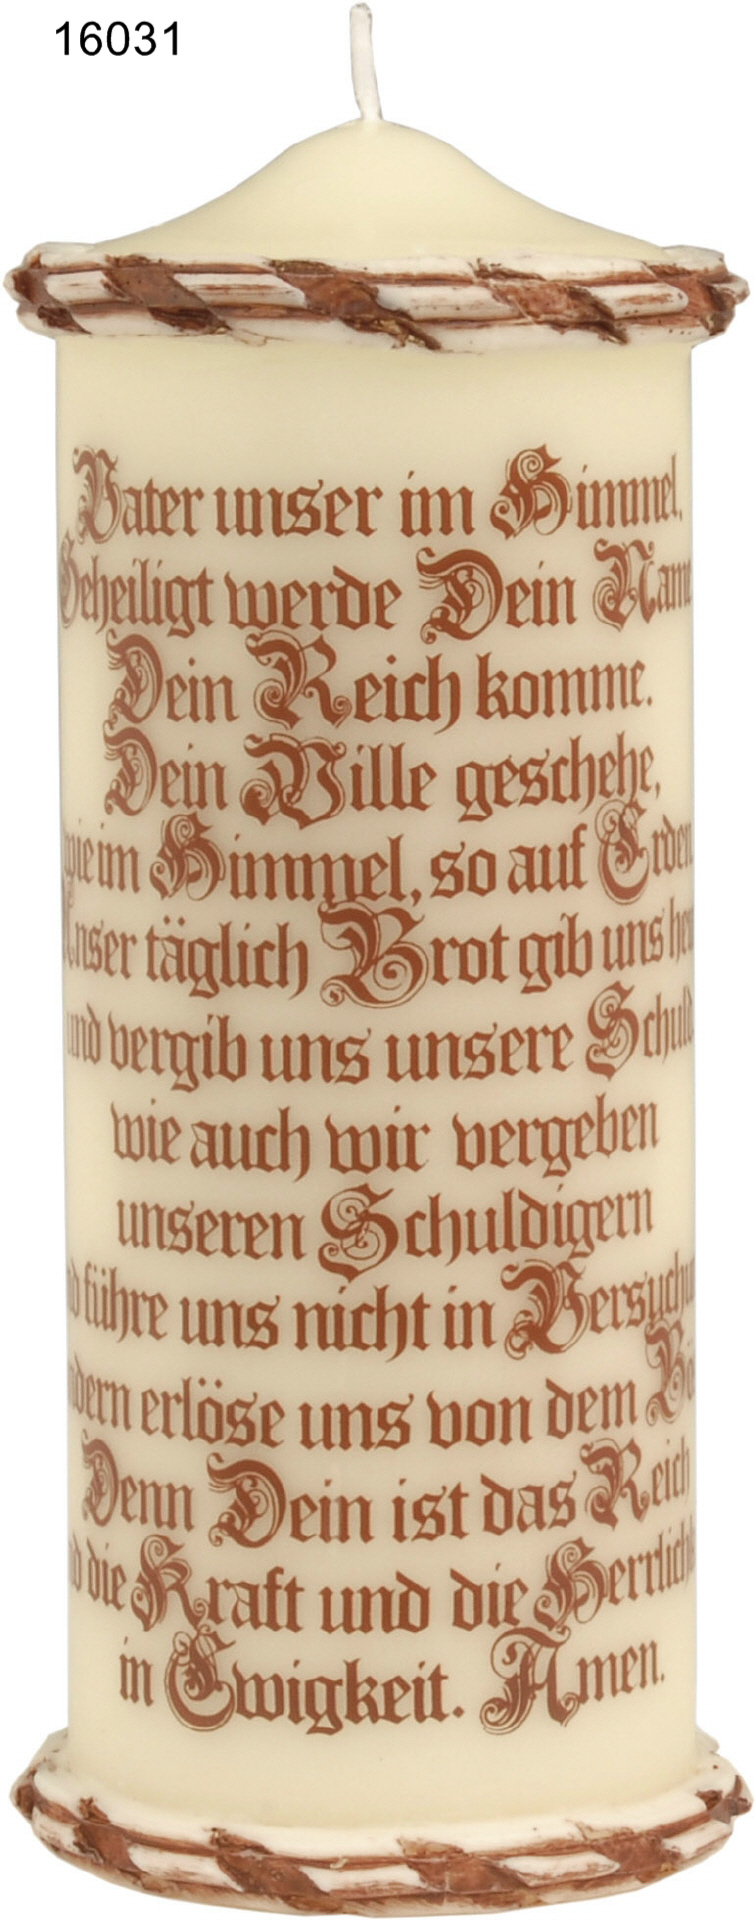 16031
Vater unser im Himmel.
Geheiligt werde Dein Name
Dein Reich komme.
Dein Wille geschehe,
wie im Himmel, so auf Erden.
Unser täglich Brot gib uns heu
und vergib uns unsere Schuld
wie auch wir vergeben
unseren Schuldigern
d führe uns nicht in Versuchun
ndern erlöse uns von dem Bö
Denn Dein ist das Reich
d die Kraft und die Herrlichk
in Ewigkeit. Amen.